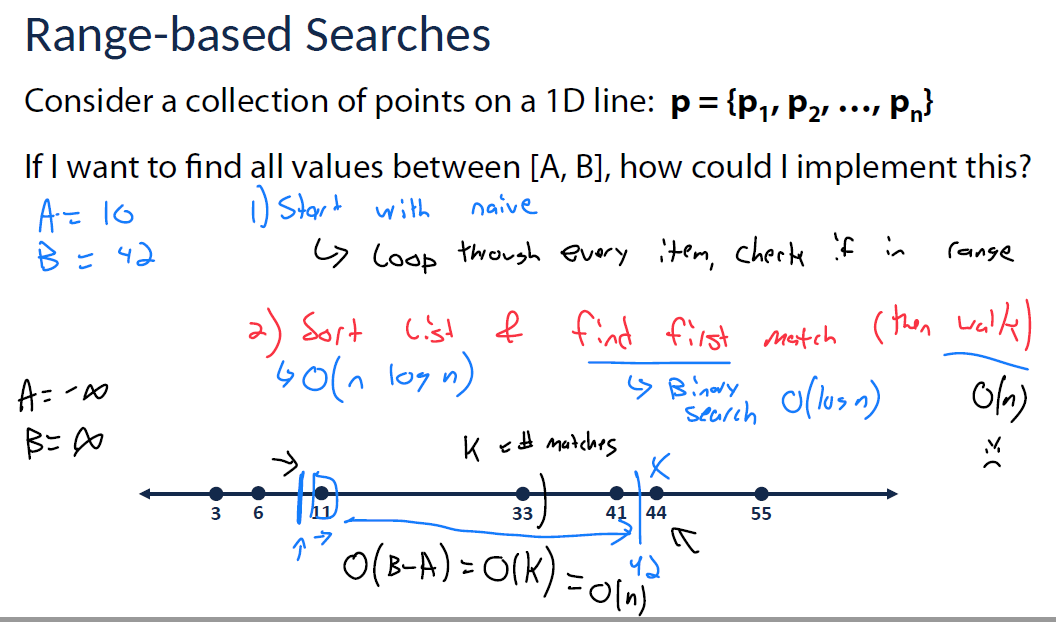 Range-based Searches
Consider a collection of points on a 1D line: p = {p₁, p₂, …, pₙ}
If I want to find all values between [A, B], how could I implement this?
A = 10
B = 42
1) Start with naive
↳ Loop through every item, check if in range
2) Sort list & find first match (then walk)
↳ O(n log n)
↳ Binary search O(log n)
O(n)
A = -∞
B = ∞
K = # matches
X
3 6 11 33 41 44 55
42
O(B-A) = O(K) = O(n)